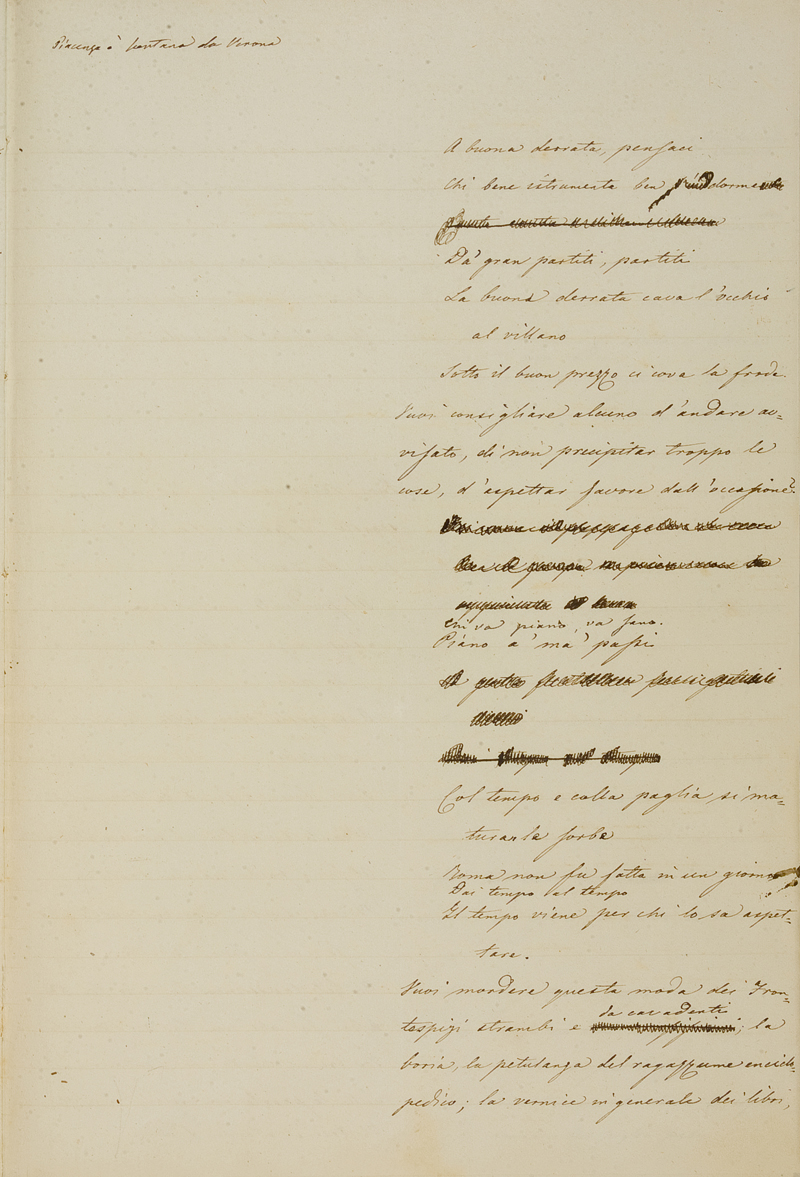 Piacenza è lontana da Verona
A buona derrata, pensaci
Chi bene istrumenta ben
Da' gran partiti, partiti
La buona derrata cava l'occhio
al villano
Sotto il buon prezzo ci cova la frode.
Vuoi consigliare alcuno d'andare av=
visato, di non precipitar troppo le
cose, d'aspettar favore dall'occasione?
Chi va piano, va sano.
Piano a' ma' passi
Col tempo e colla paglia si ma=
turan le sorbe
Roma non fu fatta in un giorno
Dai tempo al tempo
Il tempo viene per chi lo sa aspet=
tare.
Vuoi mordere questa moda dei Fron=
da cavadenti
tespizi strambi e ; la
boria, la petulanza del ragazzume encicla=
pedico; la vernice in generale dei libri,